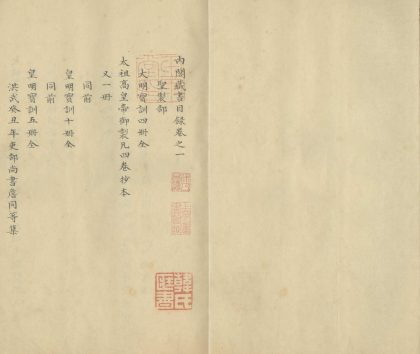 內閣藏書目錄卷之一
聖製部
大明寶訓四冊全
太祖高皇帝御製凡四卷抄本
又一冊
同前
皇明寶訓十冊全
同前
皇明寶訓五冊全
洪武癸丑年吏部尚書詹同等集
韓氏
藏書